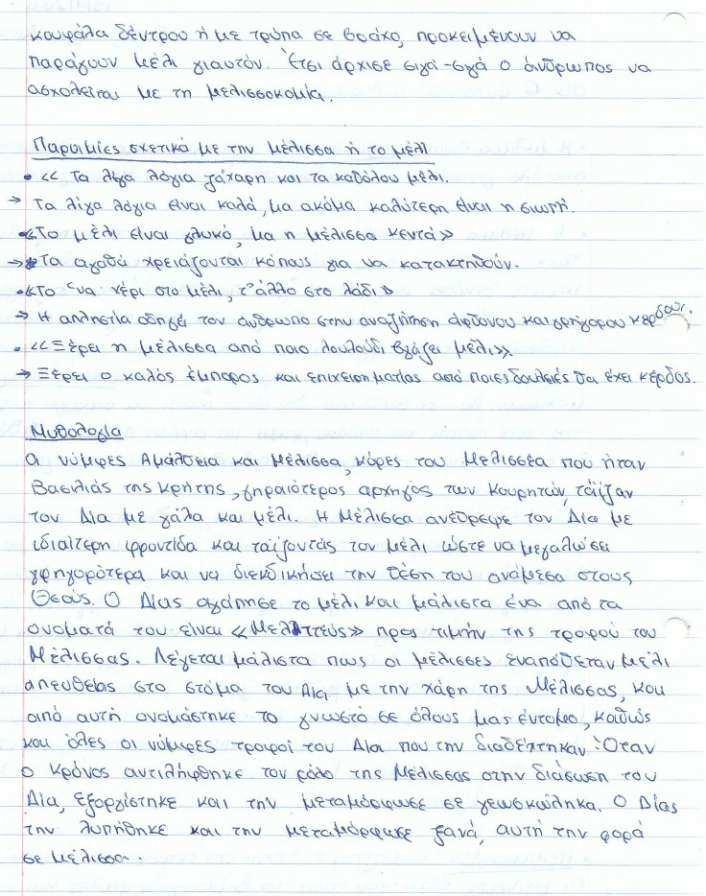 κουφάλα δέντρου ή με τρύπα σε βράχο, προκειμένουν να
παράγουν μέλι γιαυτόν. Έτσι άρχισε σιγά-σιγά ο άνθρωπος να
ασχολείται με τη μελισσοκομία.
Παροιμίες σχετικά με την μέλισσα ή το μέλι
• << Τα λίγα λόγια ζάχαρη και τα καθόλου μέλι.
→ Τα λίγα λόγια είναι καλά, μα ακόμα καλύτερη είναι η σιωπή.
•<<Το μέλι είναι γλυκό, μα η μέλισσα κεντά>>
→ Τα αγαθά χρειάζονται κόπους για να κατακτηθούν.
•<<Το 'να χέρι στο μέλι, τ' άλλο στο λάδι>>
→ Η απληστία οδηγεί τον άνθρωπο στην αναζήτηση άφθονου και γρήγορου κέρδους.
• <<Ξέρει η μέλισσα από ποιο λουλούδι βγάζει μέλι>>.
→ Ξέρει ο καλός έμπορος και επιχειρηματίας από ποιες δουλειές θα έχει κέρδος.
Μυθολογία
Οι νύμφες Αμάλθεια και Μέλισσα, κόρες του Μελισσέα που ήταν
Βασιλιάς της Κρήτης, γηραιότερος αρχηγός των Κουρητών, τάϊζαν
τον Δία με γάλα και μέλι. Η Μέλισσα ανέθρεψε τον Δία με
ιδιαίτερη φροντίδα και ταΐζοντάς τον μέλι ώστε να μεγαλώσει
γρηγορότερα και να διεκδικήσει την θέση του ανάμεσα στους
Θεούς. Ο Δίας αγάπησε το μέλι και μάλιστα ένα από τα
ονόματά του είναι <<Μελιττεύς>> προς τιμήν της τροφού του
Μέλισσας. Λέγεται μάλιστα πως οι μέλισσες εναπόθεταν μέλι
απευθείας στο στόμα του Δία, με την χάρη της Μέλισσας, και
από αυτή ονομάστηκε το γνωστό σε όλους μας έντομο, καθώς
και όλες οι νύμφες τροφοί του Δία που την διαδέχτηκαν. Όταν
ο Κρόνος αντιλήφθηκε τον ρόλο της Μέλισσας στην διάσωση του
Δία, εξοργίστηκε και την μεταμόρφωσε σε γεωσκώληκα. Ο Δίας
την λυπήθηκε και την μεταμόρφωσε ξανά, αυτή την φορά
σε μέλισσα.